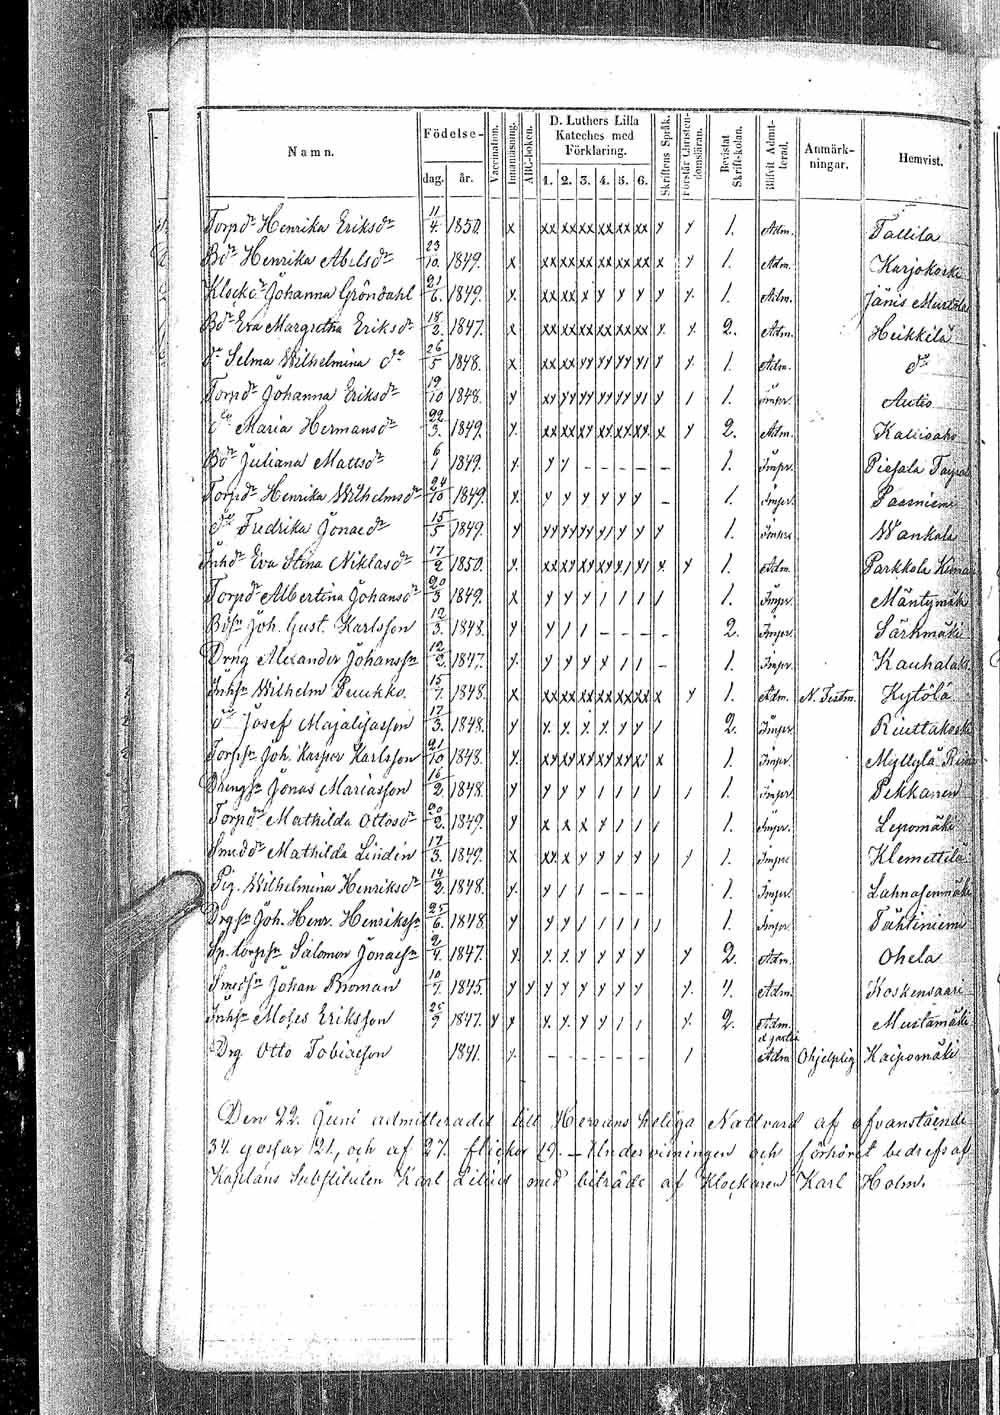 Namn. Födelse- dag. år. Vaccination. Innanläsning. ABC-boken. D. Luthers Lilla Kateches med Förklaring. 1. 2. 3. 4. 5. 6. Skriftens Språk. Förstår Christendomsläran. Bevistat Skrift-skolan. Blifvit Admitterad. Anmärkningar. Hemvist.
Torpdr Henrika Eriksdr 11/4 1850. x xx xx xx xx xx xx y y 1. Adm. Tallila
Bdr Henrika Abelsdr 23/10 1849. x xx xx xx xx xx xx x y 1. Adm. Karjokoski
Klockdr Johanna Gröndahl 21/6 1849. y. xx xx x y y y y y. 1. Adm. Jänis Murtola
Bdr Eva Margretha Eriksdr 18/2 1847. x xx xx xx xx xx xx x y 2. Adm. Heikkilä
do Selma Wilhelmina do 26/5 1848. x y y 1. Adm. do
Torpdr Johanna Eriksdr 19/10 1848. y y 1 1. Impr. Autio
do Maria Hermansdr 22/3 1849. y. xx xx xy xx xx xx x y 2. Adm. Kaliisaho
Bdr Juliana Mattsdr 6/1 1849. y. y y - - - - - 1. Impr. Piesala
Torpdr Henrika Wilhelmsdr 24/10 1849. y. y y y y y y - 1. Impr. Paasniemi
do Fredrika Jonaedr 15/5 1849. y y 1. Impr. Wankala
Inhdr Eva Stina Niklasdr 17/2 1850. y. x y 1. Adm. Parkkola
Torpdr Albertina Johansdr 20/3 1849. x y y y 1 1 1 1 1. Impr. Mäntymäki
Bdsn Joh. Gust. Karlsson 12/3 1848. y y 1 1 - - - - 2. Impr. Särkimäki
Drng Alexander Johanssn 12/2 1847. y. y y y y 1 1 - 1. Impr. Kauhalaks.
Inhsn Wilhelm Puukko. 15/7 1848. x xx xx xx xx xx xx x y 1. Adm. N. Testm. Kytölä
do Josef Majaliasson 17/3 1848. y y. y. y. y. y y 1 2. Impr. Riuttakoski
Torpsn Joh. Kasper Karlsson 21/10 1848. y. x 1. Impr. Myllylä
Drengsn Jonas Mariasson 16/2 1848. y. y y y 1 1 1 1 1 1. Impr. Pekkanen
Torpdr Mathilda Ottosdr 20/2 1849. y x x x y 1 1 1 1. Impr. Lepomäki
Smeddr Mathilda Lindén 17/3 1849. x xx x y y y y 1 y 1. Impr. Klemettilä
Pig. Wilhelmina Henriksdr 14/2 1848. y. y 1 1 - - - 1. Impr. Lahnasenmäki
Drgsn Joh. Henr. Henrikssn 25/6 1848. y y y 1 1 1 1 1 1. Impr. Tähtiniemi
Sp. torpsn Salomon Jonaesn 2/4 1847. y y. y. y y y y y 2. Adm. Ohela
Smedsn Johan Broman 10/7 1845. y y y y y y y y y. 4. Adm. Koskensaari
Inhsn Moses Eriksson 25/9 1847. y y y. y. y y 1 1 y. 2. Adm. Mustamäki
Drg Otto Tobiaesson 1841. y. - - - - - - 1 Adm Ohjelplig Kaipomäki
Den 22. Juni admitterades till Herrans heliga Nattvard af ofvanstående
34. gossar 21., och af 27. flickor 19. – Undervisningen och förhöret bedrefs af
Kaplans Substituten Karl Lilius med biträde af Klockaren Karl Holm.